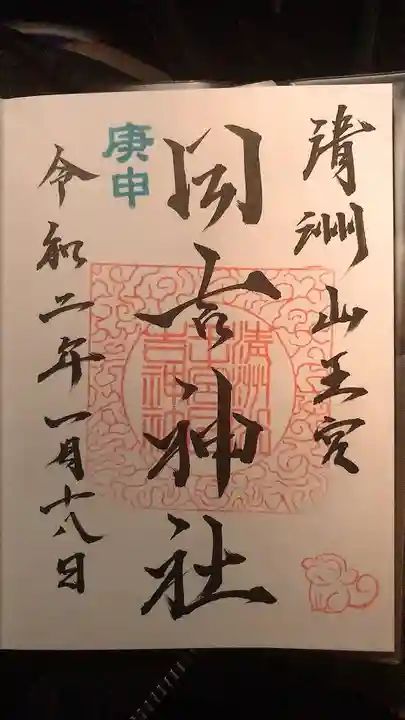 清洲山王宮
日吉神社
庚申
令和二年一月十八日
清洲山王日吉神社